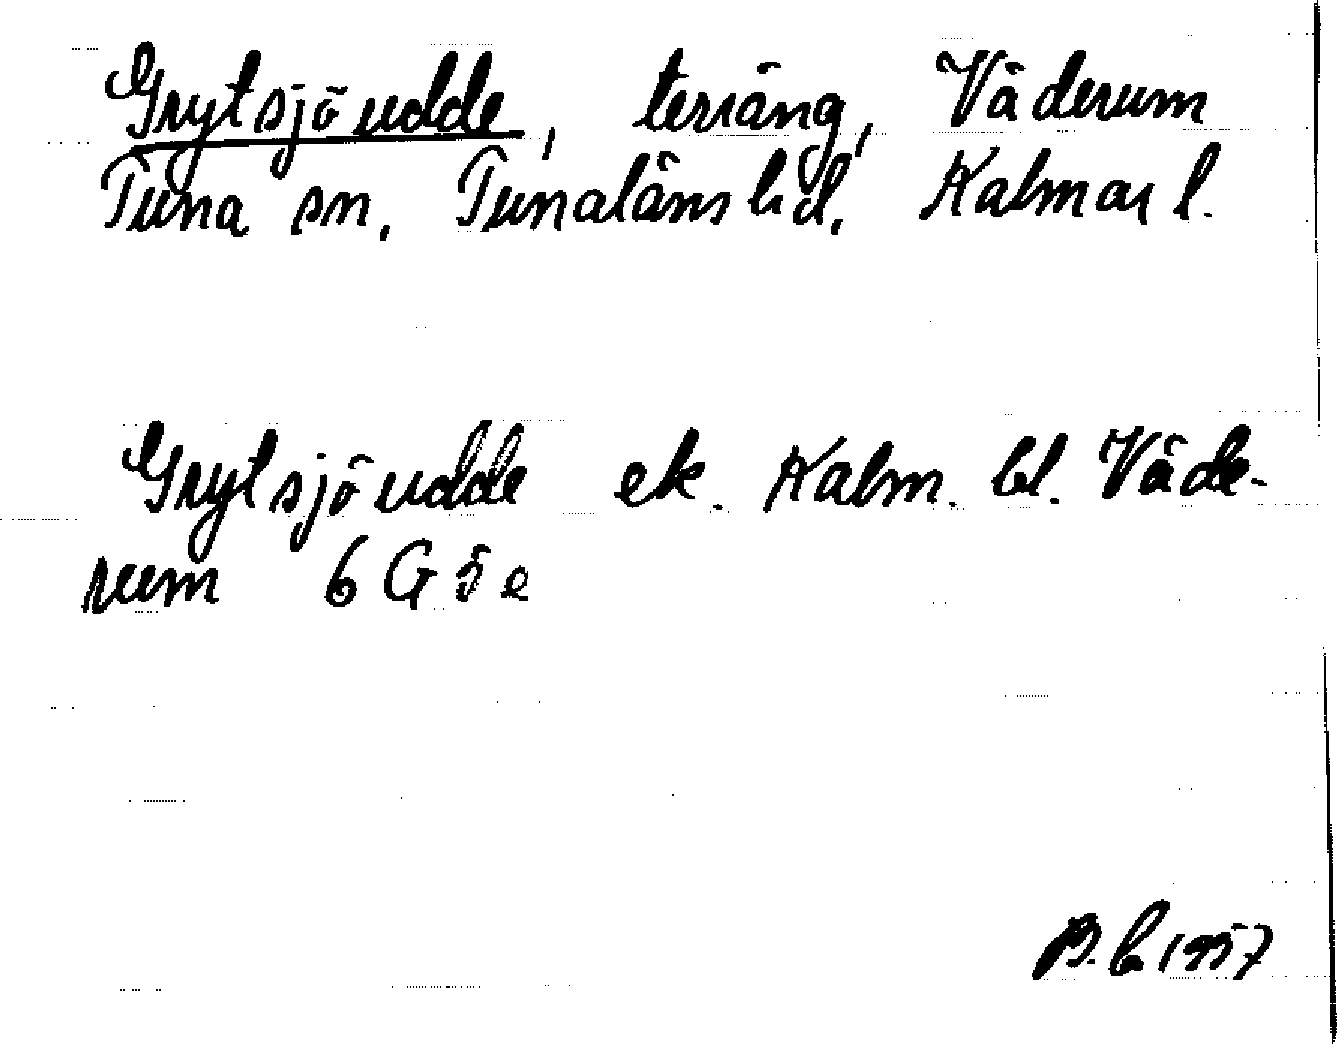 Grytsjöudde, terräng, Väderum
Tuna sn, Tunaläns hd, Kalmar l.
Grytsjöudde ek. Kalm. bl. Väde-
rum 6 G 5 e
1957